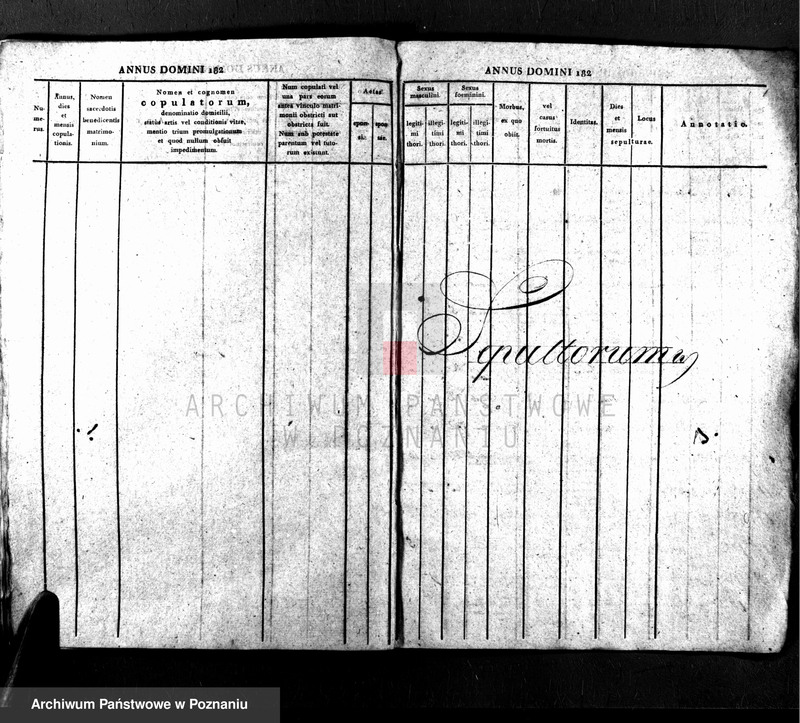 ANNUS DOMINI 182
Nu-
me-
rus.
Annus,
dies
et
mensis
copula-
tionis.
Nomen
sacerdotis
benedicentis
matrimo-
nium.
Nomen et cognomen
copulatorum,
denominatio domicilii,
status artis vel conditionis vitæ,
mentio trium promulgationum
et quod nullum obfuit
impedimentum.
Num copulati vel
una pars eorum
antea vinculo matri-
monii obstricti aut
obstricta fuit.
Num sub potestate
parentum vel tuto-
rum existunt.
Aetas
spon-
si.
spon-
sæ.
ANNUS DOMINI 182
Sexus
masculini.
legiti-
mi
thori.
illegi-
timi
thori.
Sexus
foeminini.
legiti-
mi
thori.
illegi-
timi
thori.
Morbus,
ex quo
obiit.
vel
casus
fortuitus
mortis.
Identitas.
Dies
et
mensis
Locus
sepulturae.
Annotatio.
Sepultorum
ARCHIWUM PAŃSTWOWE
W POZNANIU
Archiwum Państwowe w Poznaniu